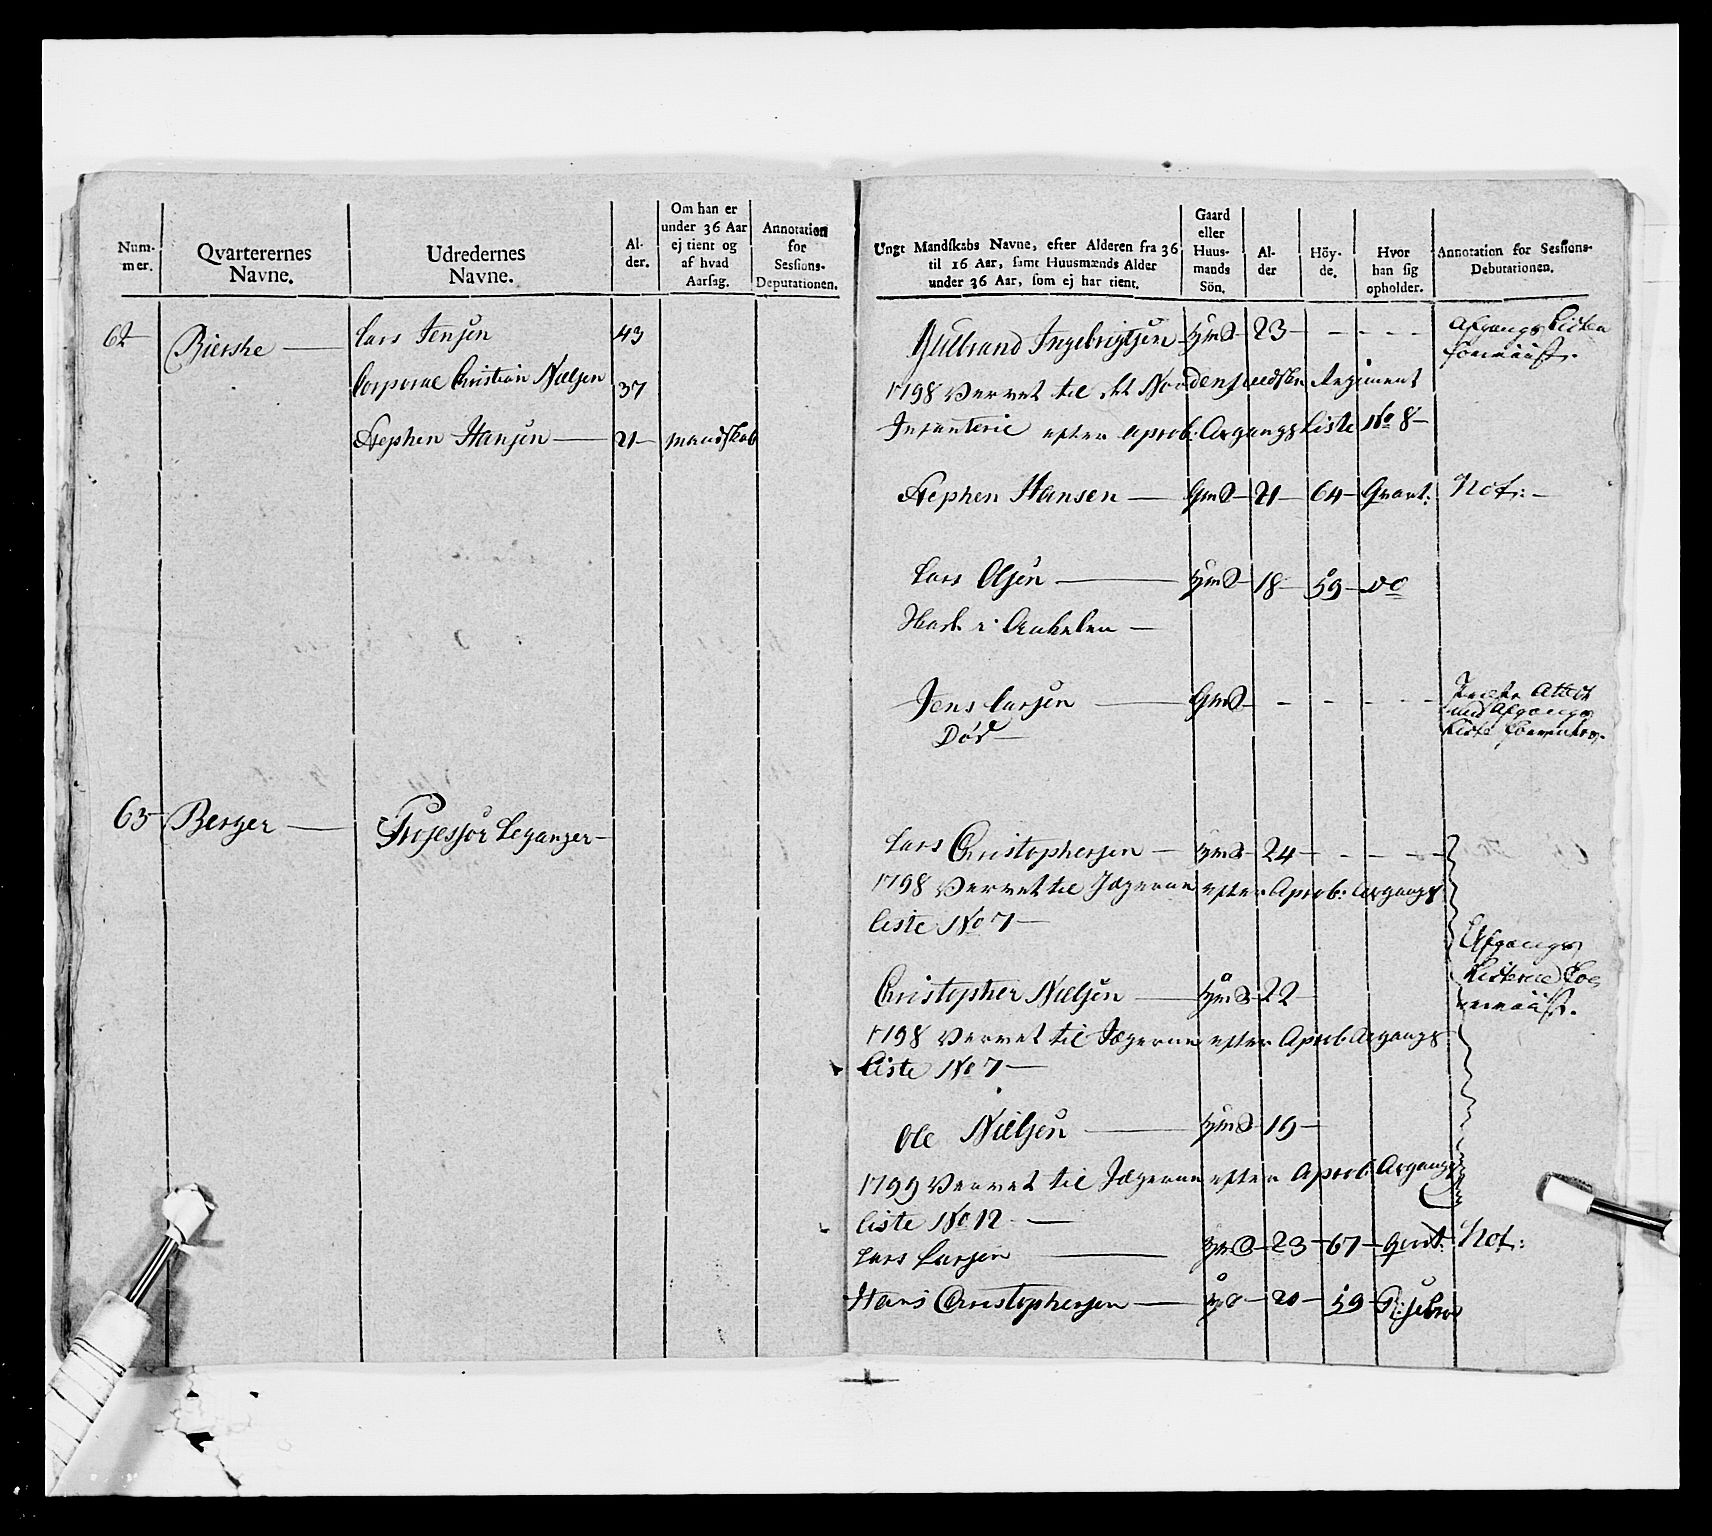 Num-
mer.
Qvarterernes
Navne.
Udredernes
Navne.
Al-
der.
Om han er
under 36 Aar
ej tient og
af hvad
Aarsag.
Annotation
for
Sessions-
Deputationen.
62 Bierske — Lars Jensen 43
Corporal Christian Nielsen 37
Stephen Hansen — 21 mandskab
63 Berger — Professor Leganger —
Ungt Mandskabs Navne, efter Alderen fra 36
til 16 Aar, samt Huusmænds Alder
under 36 Aar, som ej har tient.
Gaard
eller
Huus-
mands
Sön.
Al-
der
Höy-
de.
Hvor
han sig
opholder.
Annotation for Sessions-
Debutationen.
Gulbrand Ingebrigtsen 23 - - - - Afgangs Listen
1798 Hvervet til det Nordenfieldske Regiment
Infanterie efter aprob: Afgangs Liste No 8 —
Stephen Hansen — GmS 21 64 Qvart: Not: —
Lars Olsen — HmS 18 59 do
Jens Larsen — GmS - - - -
Død —
Liste
Lars Christophersen — HmS 24 - - -
1798 Hvervet til Jægerne efter Aprob: Afgangs
liste No 7 —
Afgangs
Christopher Nielsen — HmS 22
1798 Hvervet til Jægerne efter Aprob. Afgangs
Liste No 7 —
Ole Nielsen — HmS 19
1799 Hvervet til Jægerne efter Aprob: Afgangs
liste No 12 —
Lars Larsen — HmS 23 67 Qvart: Not:
Hans Christophersen — 20 59